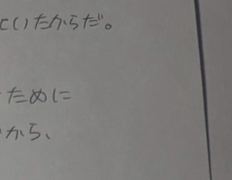 ていたからだ。
ために
から、